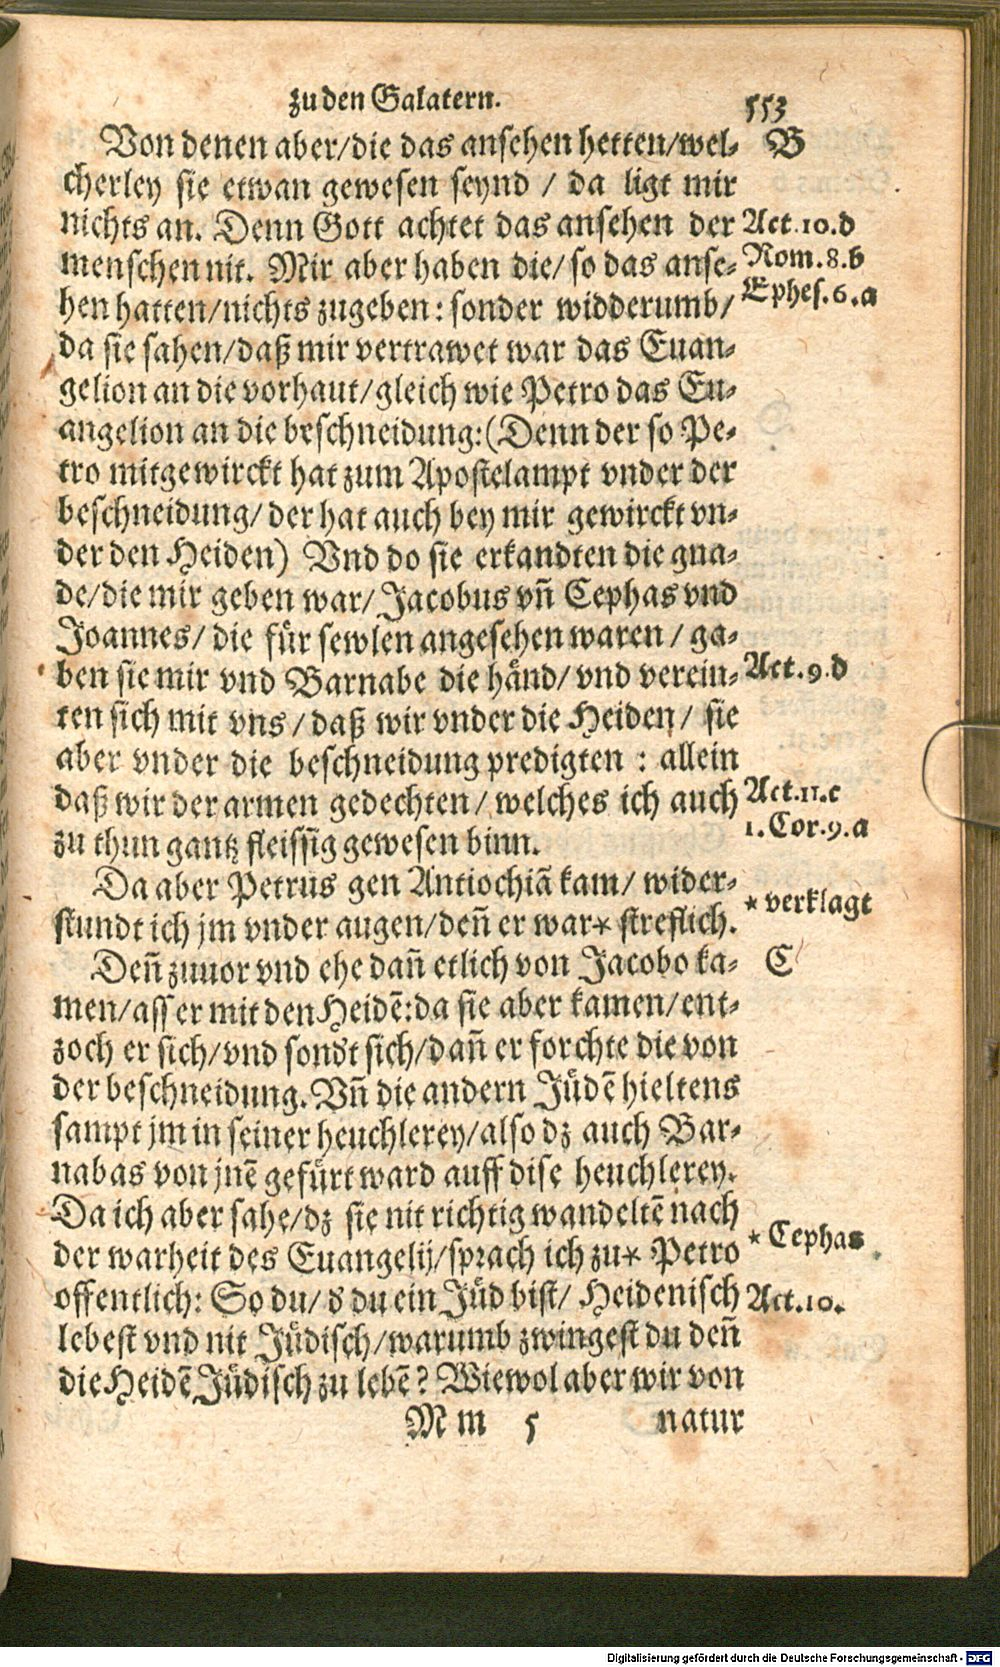 zu den Galatern.
553
Von denen aber/die das ansehen hetten/wel-
B
cherley sie etwan gewesen seynd / da ligt mir
nichts an. Denn Gott achtet das ansehen der
Act.10.d
menschen nit. Mir aber haben die/ so das anse-
Rom.8.b
hen hatten/nichts zugeben: sonder widderumb/
Ephes.6.a
da sie sahen/daß mir vertrawet war das Euan-
gelion an die vorhaut/gleich wie Petro das Eu-
angelion an die beschneidung:(Denn der so Pe-
tro mitgewirckt hat zum Apostelampt vnder der
beschneidung/ der hat auch bey mir gewirckt vn-
der den Heiden) Vnd do sie erkandten die gna-
de/die mir geben war/ Jacobus vñ Cephas vnd
Joannes/ die für sewlen angesehen waren / ga-
ben sie mir vnd Barnabe die händ/ vnd verein-
Act.9.d
ten sich mit vns / daß wir vnder die Heiden/ sie
aber vnder die beschneidung predigten : allein
daß wir der armen gedechten/ welches ich auch
Act.11.c
zu thun gantz fleissig gewesen binn.
1.Cor.9.a
Da aber Petrus gen Antiochiã kam/ wider-
stundt ich jm vnder augen/deñ er war* streflich.
* verklagt
Deñ zuuor vnd ehe dañ etlich von Jacobo ka-
C
men/ass er mit den Heidẽ:da sie aber kamen/ent-
zoch er sich/vnd sondt sich/dañ er forchte die von
der beschneidung. Vñ die andern Jüdẽ hieltens
sampt jm in seiner heuchlerey/also dz auch Bar-
nabas von jnẽ gefürt ward auff dise heuchlerey.
Da ich aber sahe/dz sie nit richtig wandeltẽ nach
der warheit des Euangelij/sprach ich zu* Petro
* Cephas
offentlich: So du/ d du ein Jüd bist/ Heidenisch
Act.10.
lebest vnd nit Jüdisch/warumb zwingest du deñ
die Heidẽ Jüdisch zu lebẽ? Wiewol aber wir von
M m 5
natur
Digitalisierung gefördert durch die Deutsche Forschungsgemeinschaft - DFG